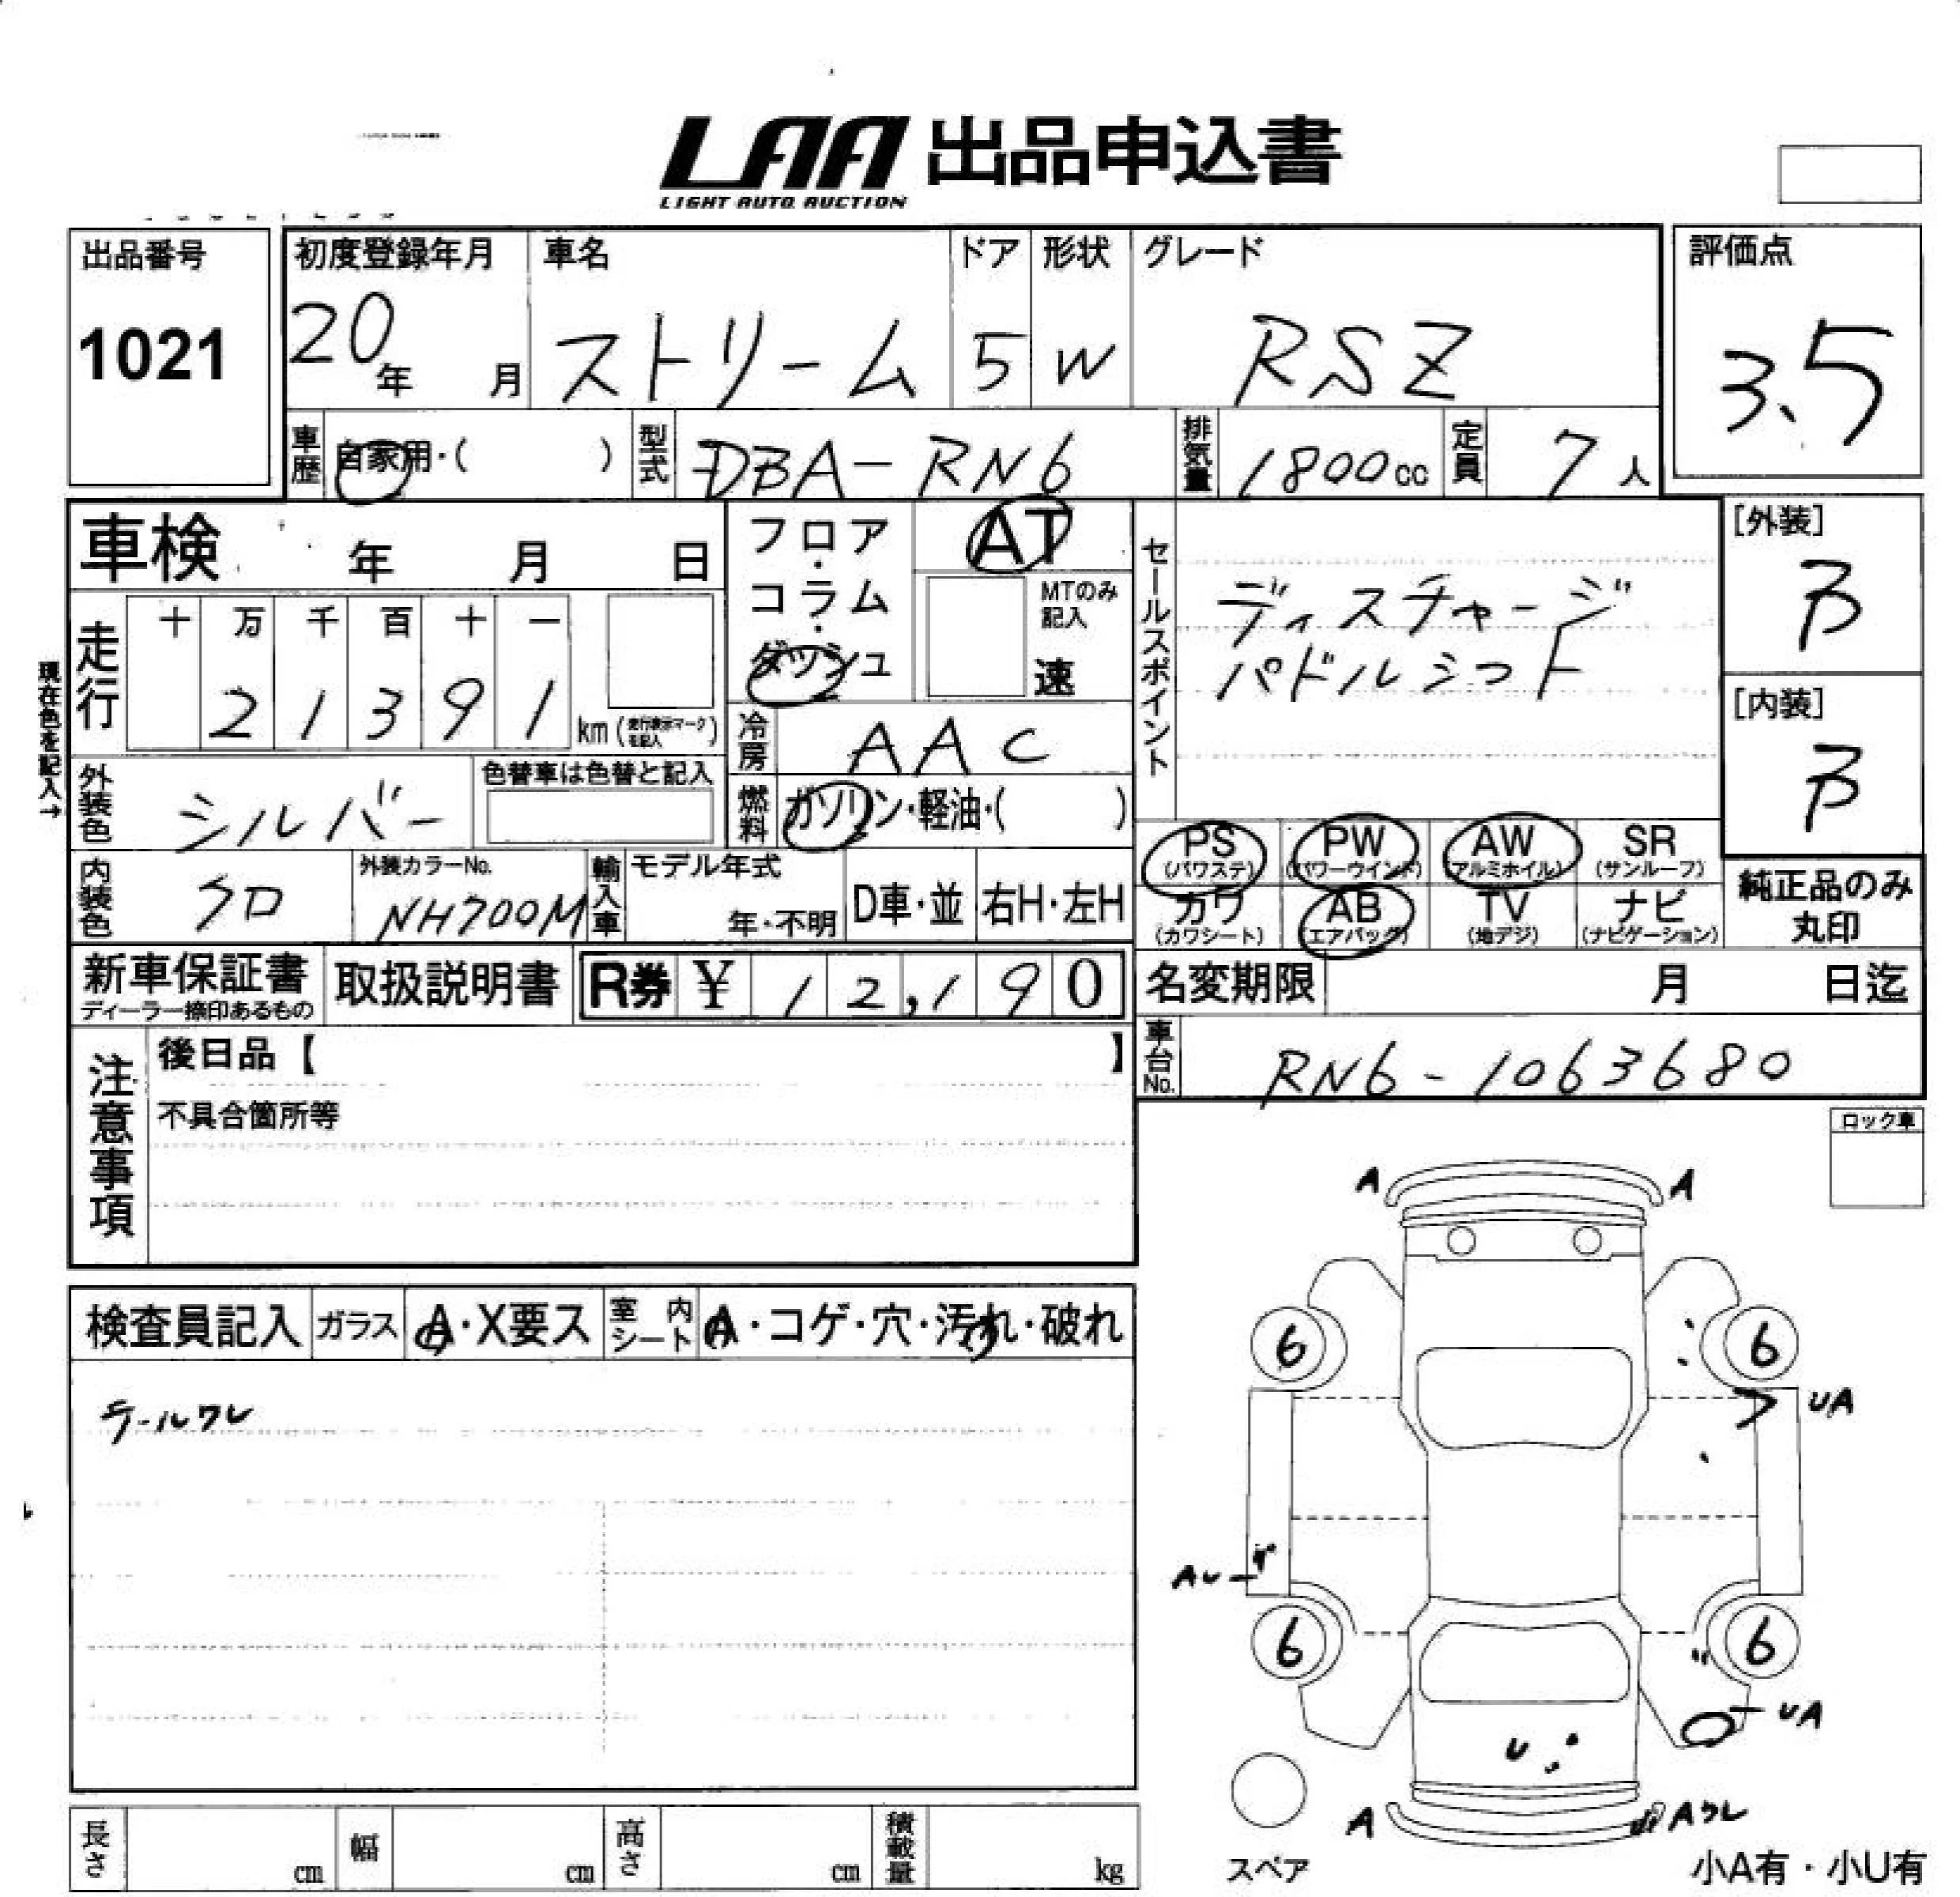 LAA 出品申込書
LIGHT AUTO AUCTION
出品番号
1021
初度登録年月
20年 月
車名
ストリーム
ドア
5
形状
W
グレード
RSZ
評価点
3.5
車歴 自家用・( )
型式 DBA-RN6
排気量 1800cc
定員 7人
車検 年 月 日
フロア・コラム・ダッシュ
AT
MTのみ記入
速
セールスポイント
ディスチャージ
パドルシフト
[外装]
B
[内装]
B
現在色を記入→
走行
十 万 千 百 十 一
2 1 3 9 1 km (走行表示マークを記入)
冷房 AAC
外装色 シルバー
色替車は色替と記入
燃料 ガソリン・軽油・( )
PS (パワステ)
PW (パワーウインド)
AW (アルミホイル)
SR (サンルーフ)
内装色 クロ
外装カラーNo.
NH700M
輸入車
モデル年式
年・不明
D車・並
右H・左H
カワ (カワシート)
AB (エアバッグ)
TV (地デジ)
ナビ (ナビゲーション)
純正品のみ
丸印
新車保証書
ディーラー捺印あるもの
取扱説明書
R券 ¥ 12,190
名変期限 月 日迄
車台No. RN6-1063680
注意事項
後日品【 】
不具合箇所等
ロック車
検査員記入
ガラス A・X要ス
室内シート A・コゲ・穴・汚れ・破れ
テールワレ
A A
6 6
UA
AU
6 6
UA
U
A Aワレ
スペア
小A有・小U有
長さ cm
幅 cm
高さ cm
積載量 kg